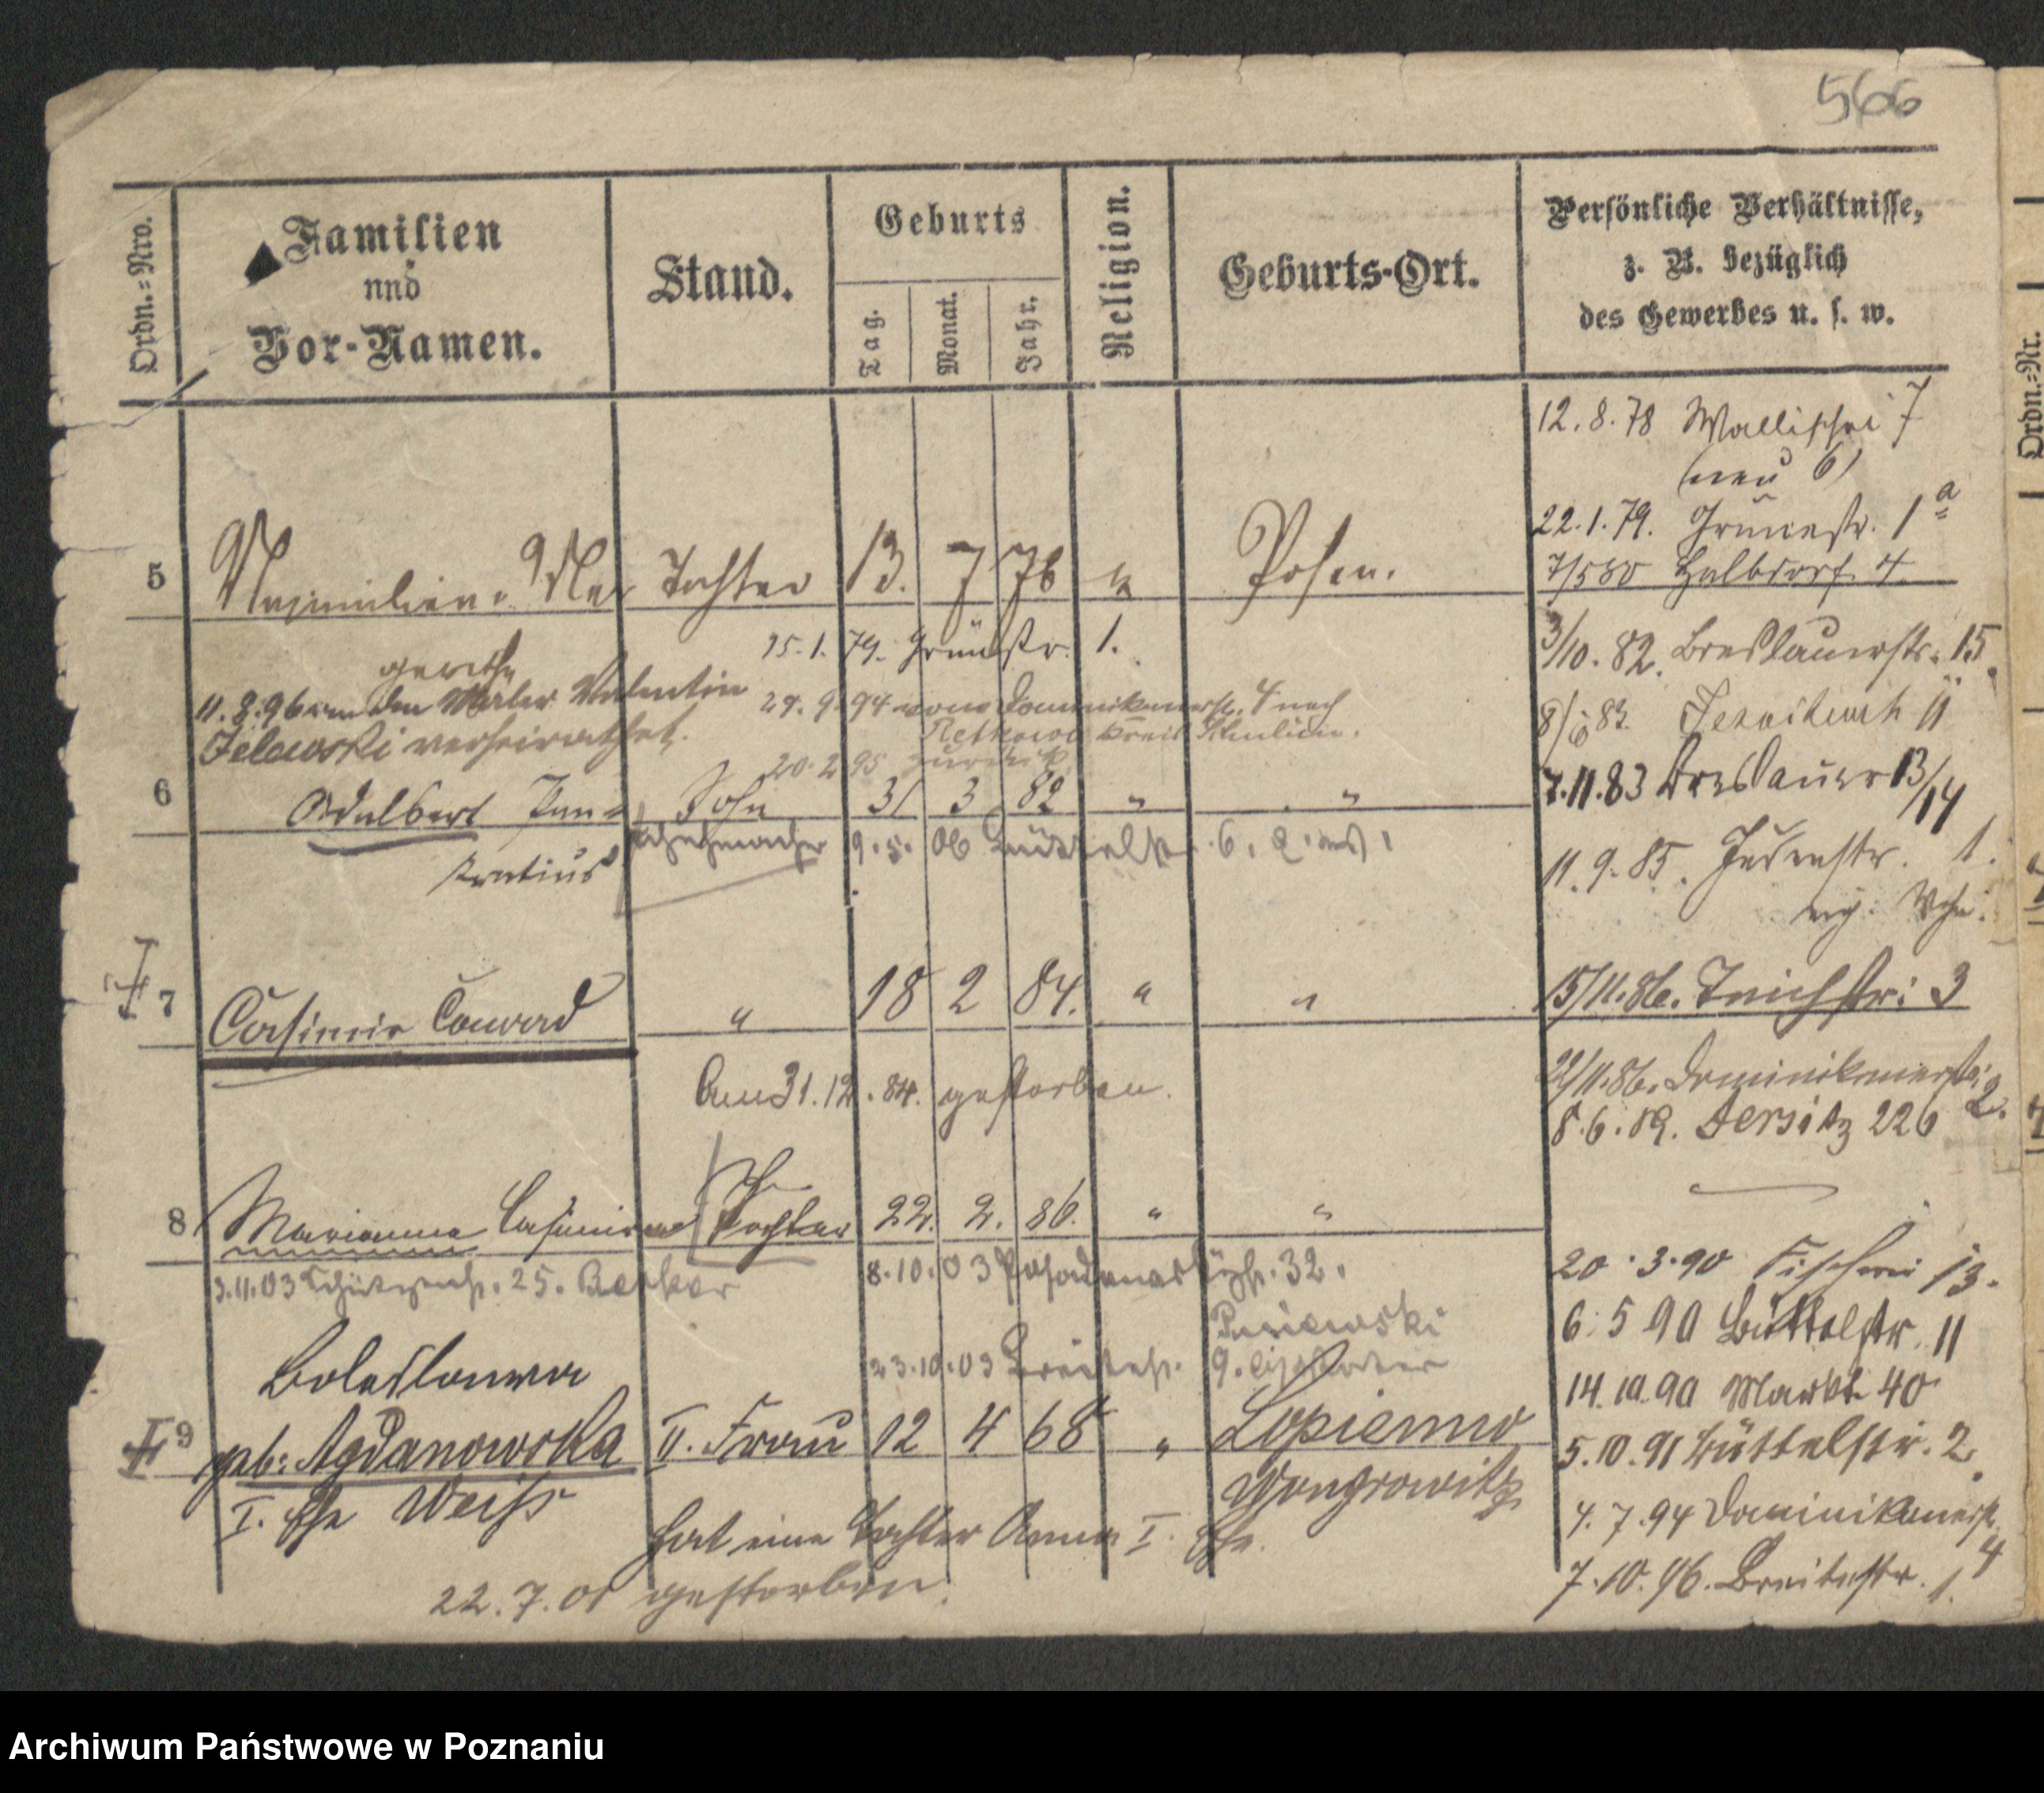 566
Ordn.=Nro.
Familien
und
Vor-Namen.
Stand.
Geburts
Tag.
Monat.
Jahr.
Religion.
Geburts-Ort.
Persönliche Verhältnisse,
z. B. bezüglich
des Gewerbes u. s. w.
Ordn.=Nr.
12.8.78 Wallischei 7
(neu 6)
22.1.79. Grünestr. 1a
7/5 80 Halbdorf 4.
5 Tochter 13. 7 76 k Posen.
15.1.79. Grünstr. 1.
3/10. 82. Breslauerstr. 15.
11.8.96 an den Maler Valentin
29.9.94 vom Dominikanerstr. 4 nach
verheirathet.
20.2.95 zurück
83. Jesuitenstr. 11
7.11.83 Breslauer 13/14
6 Adalbert Pan= Sohn 31 3 82 " "
kratius
Schuhmacher 9.5.06 Büttelstr. 6.
11.9.85. Judenstr. 1.
7 Casimir Conrad " 18 2 84. " "
15/11.86. Teichstr: 3
Am 31.12.84. gestorben.
22/11.86. Dominikanerstr. 2.
8.6.89. Jersitz 226
8 Marianna Casimira Tochter 22. 2. 86. " "
3.11.03 Schützenstr. 25. Becker
8.10.03 32.
20.3.90 Fischerei 13.
6.5 90 Büttelstr. 11
23.10.03 Breitestr. 9.
14.10.90 Markt 40
Boleslawa
9 geb: Agdanowska II. Frau 12 4 68 " Lopienno
Wongrowitz
5.10.91 Büttelstr. 2.
I. Ehe Weiss
hat eine Tochter Anna I. Ehe.
4.7.94 Dominikanerstr. 4
22.7.01 gestorben.
7.10.96. Breitestr. 1.
Archiwum Państwowe w Poznaniu